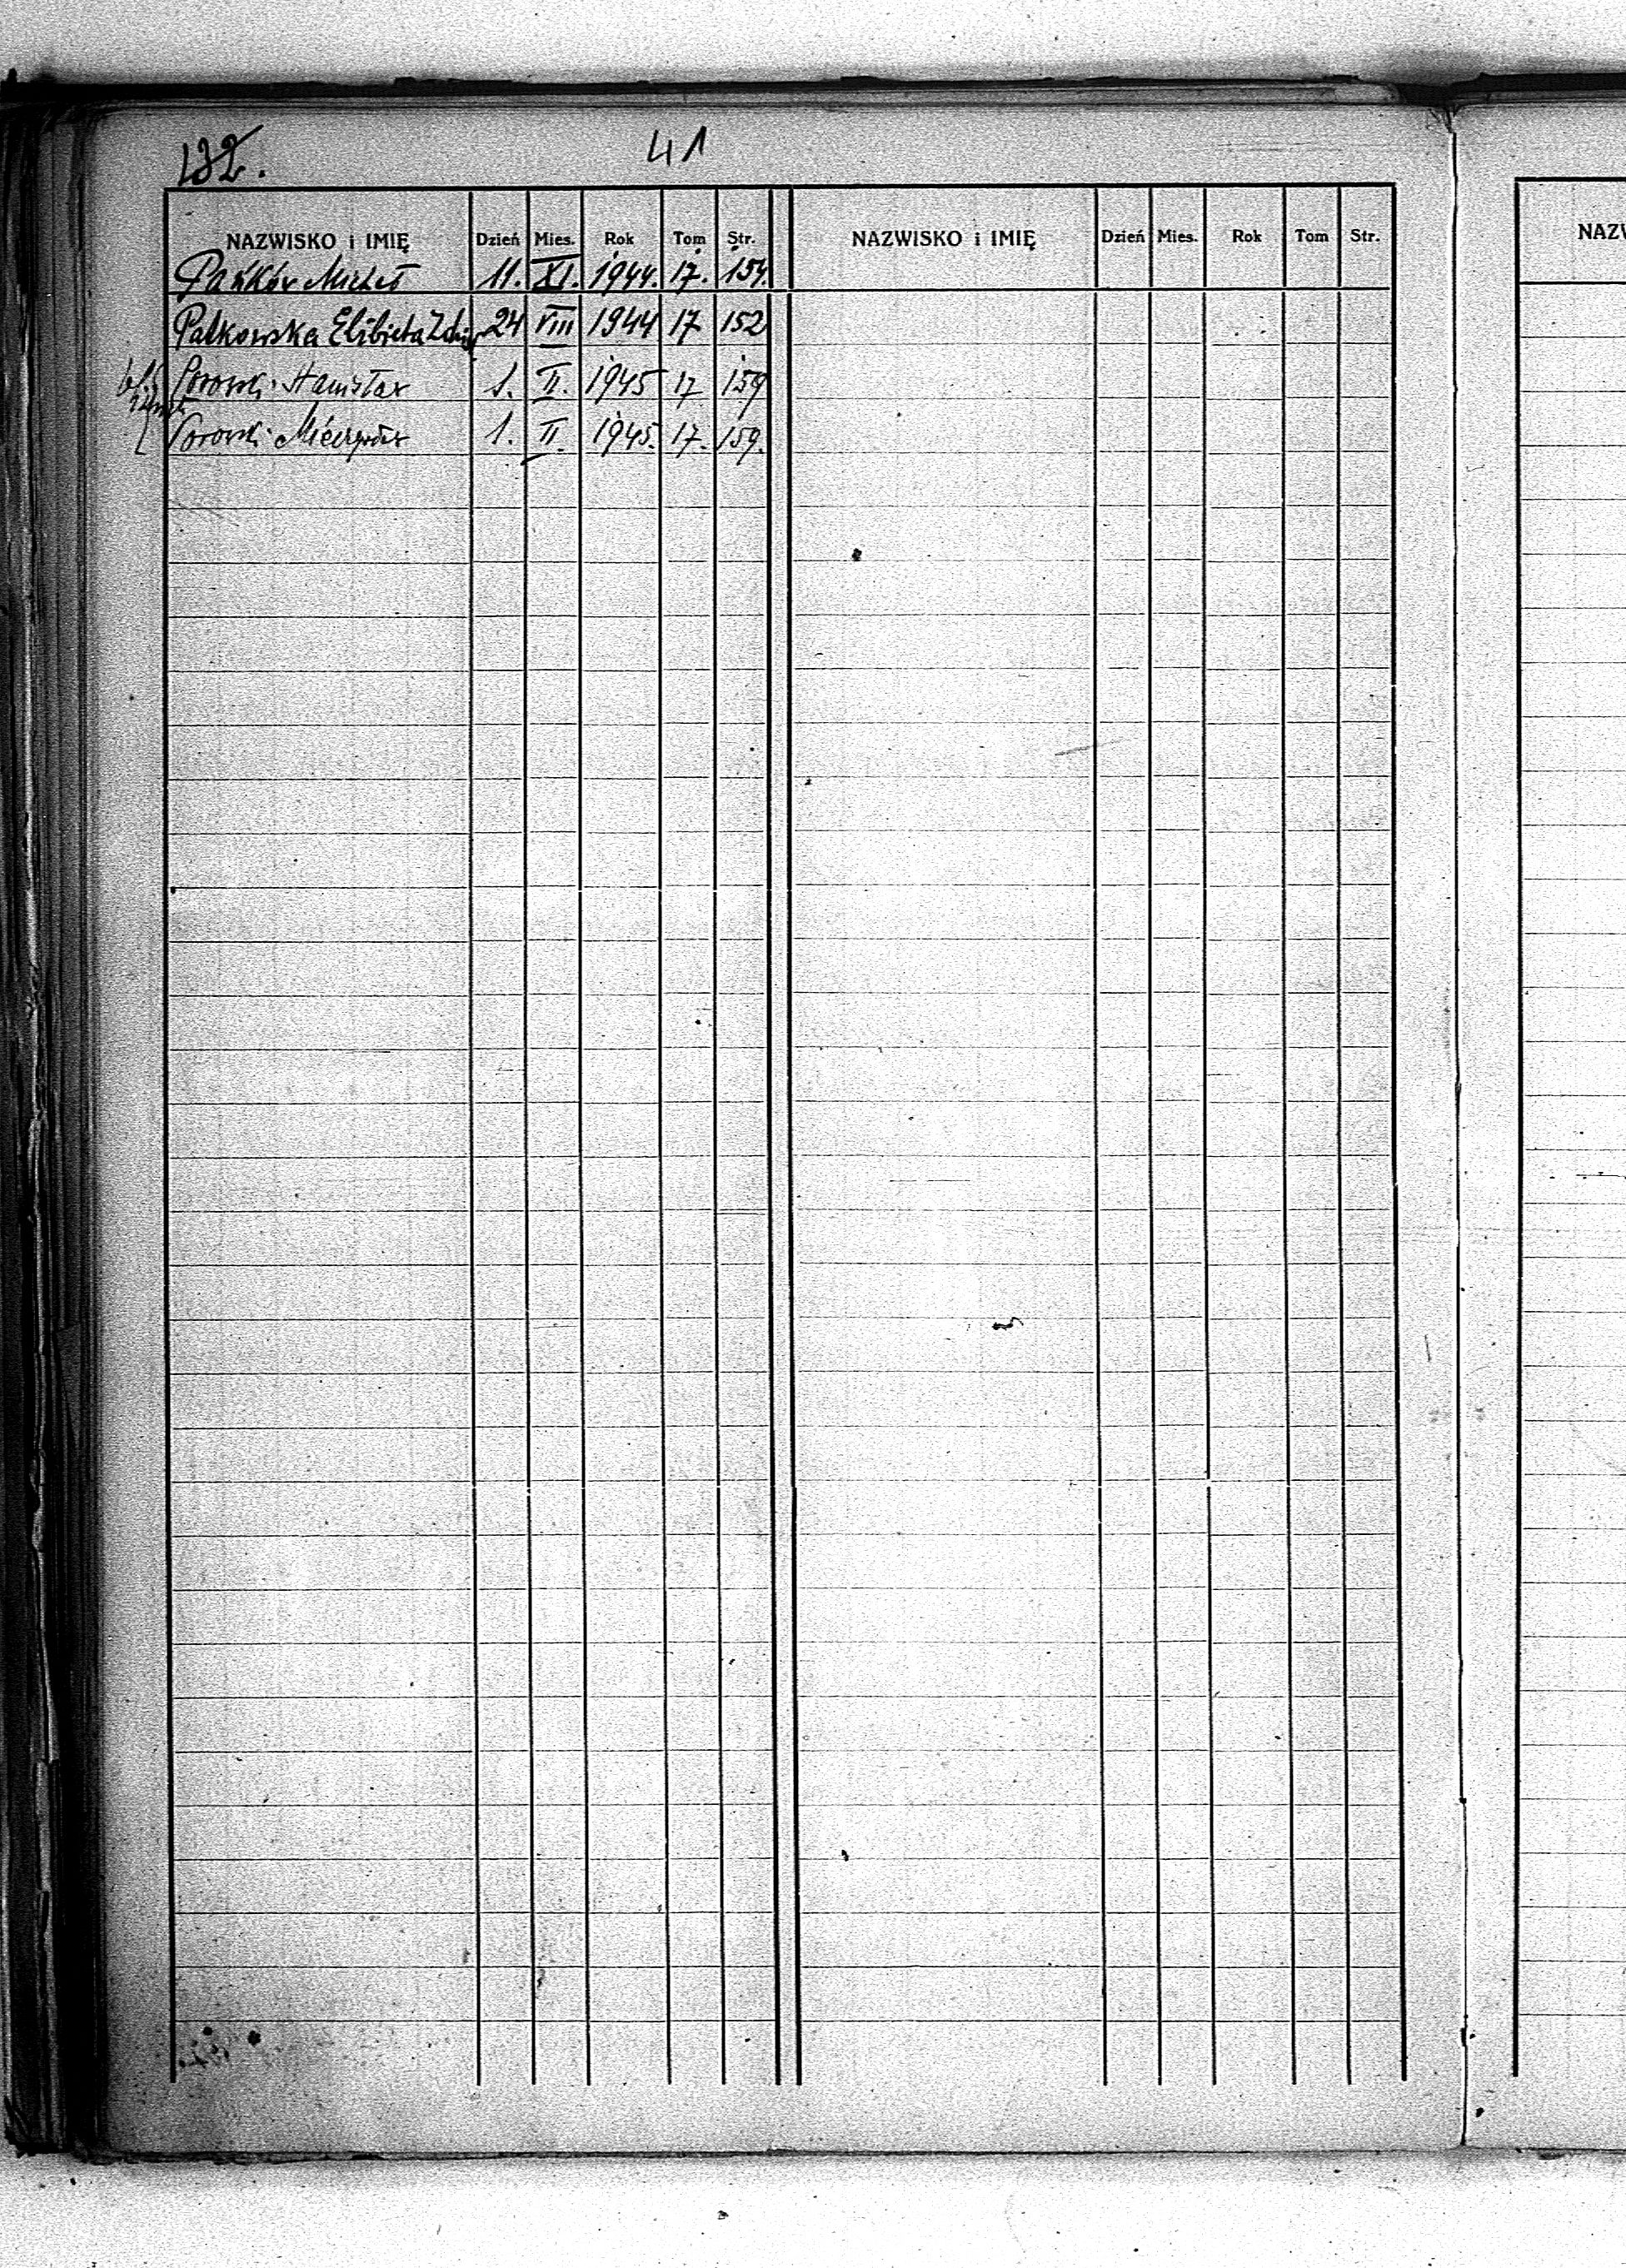 132. 41
NAZWISKO i IMIĘ Dzień Mies. Rok Tom Str. NAZWISKO i IMIĘ Dzień Mies. Rok Tom Str. NAZW
Pańków Michał 11. XI. 1944. 17. 154.
Palkowska Elżbieta 24 VIII 1944 17 152
Porowski Stanisław 1. II. 1945 17 159
Porowski Mieczysław 1. II. 1945. 17. 159.